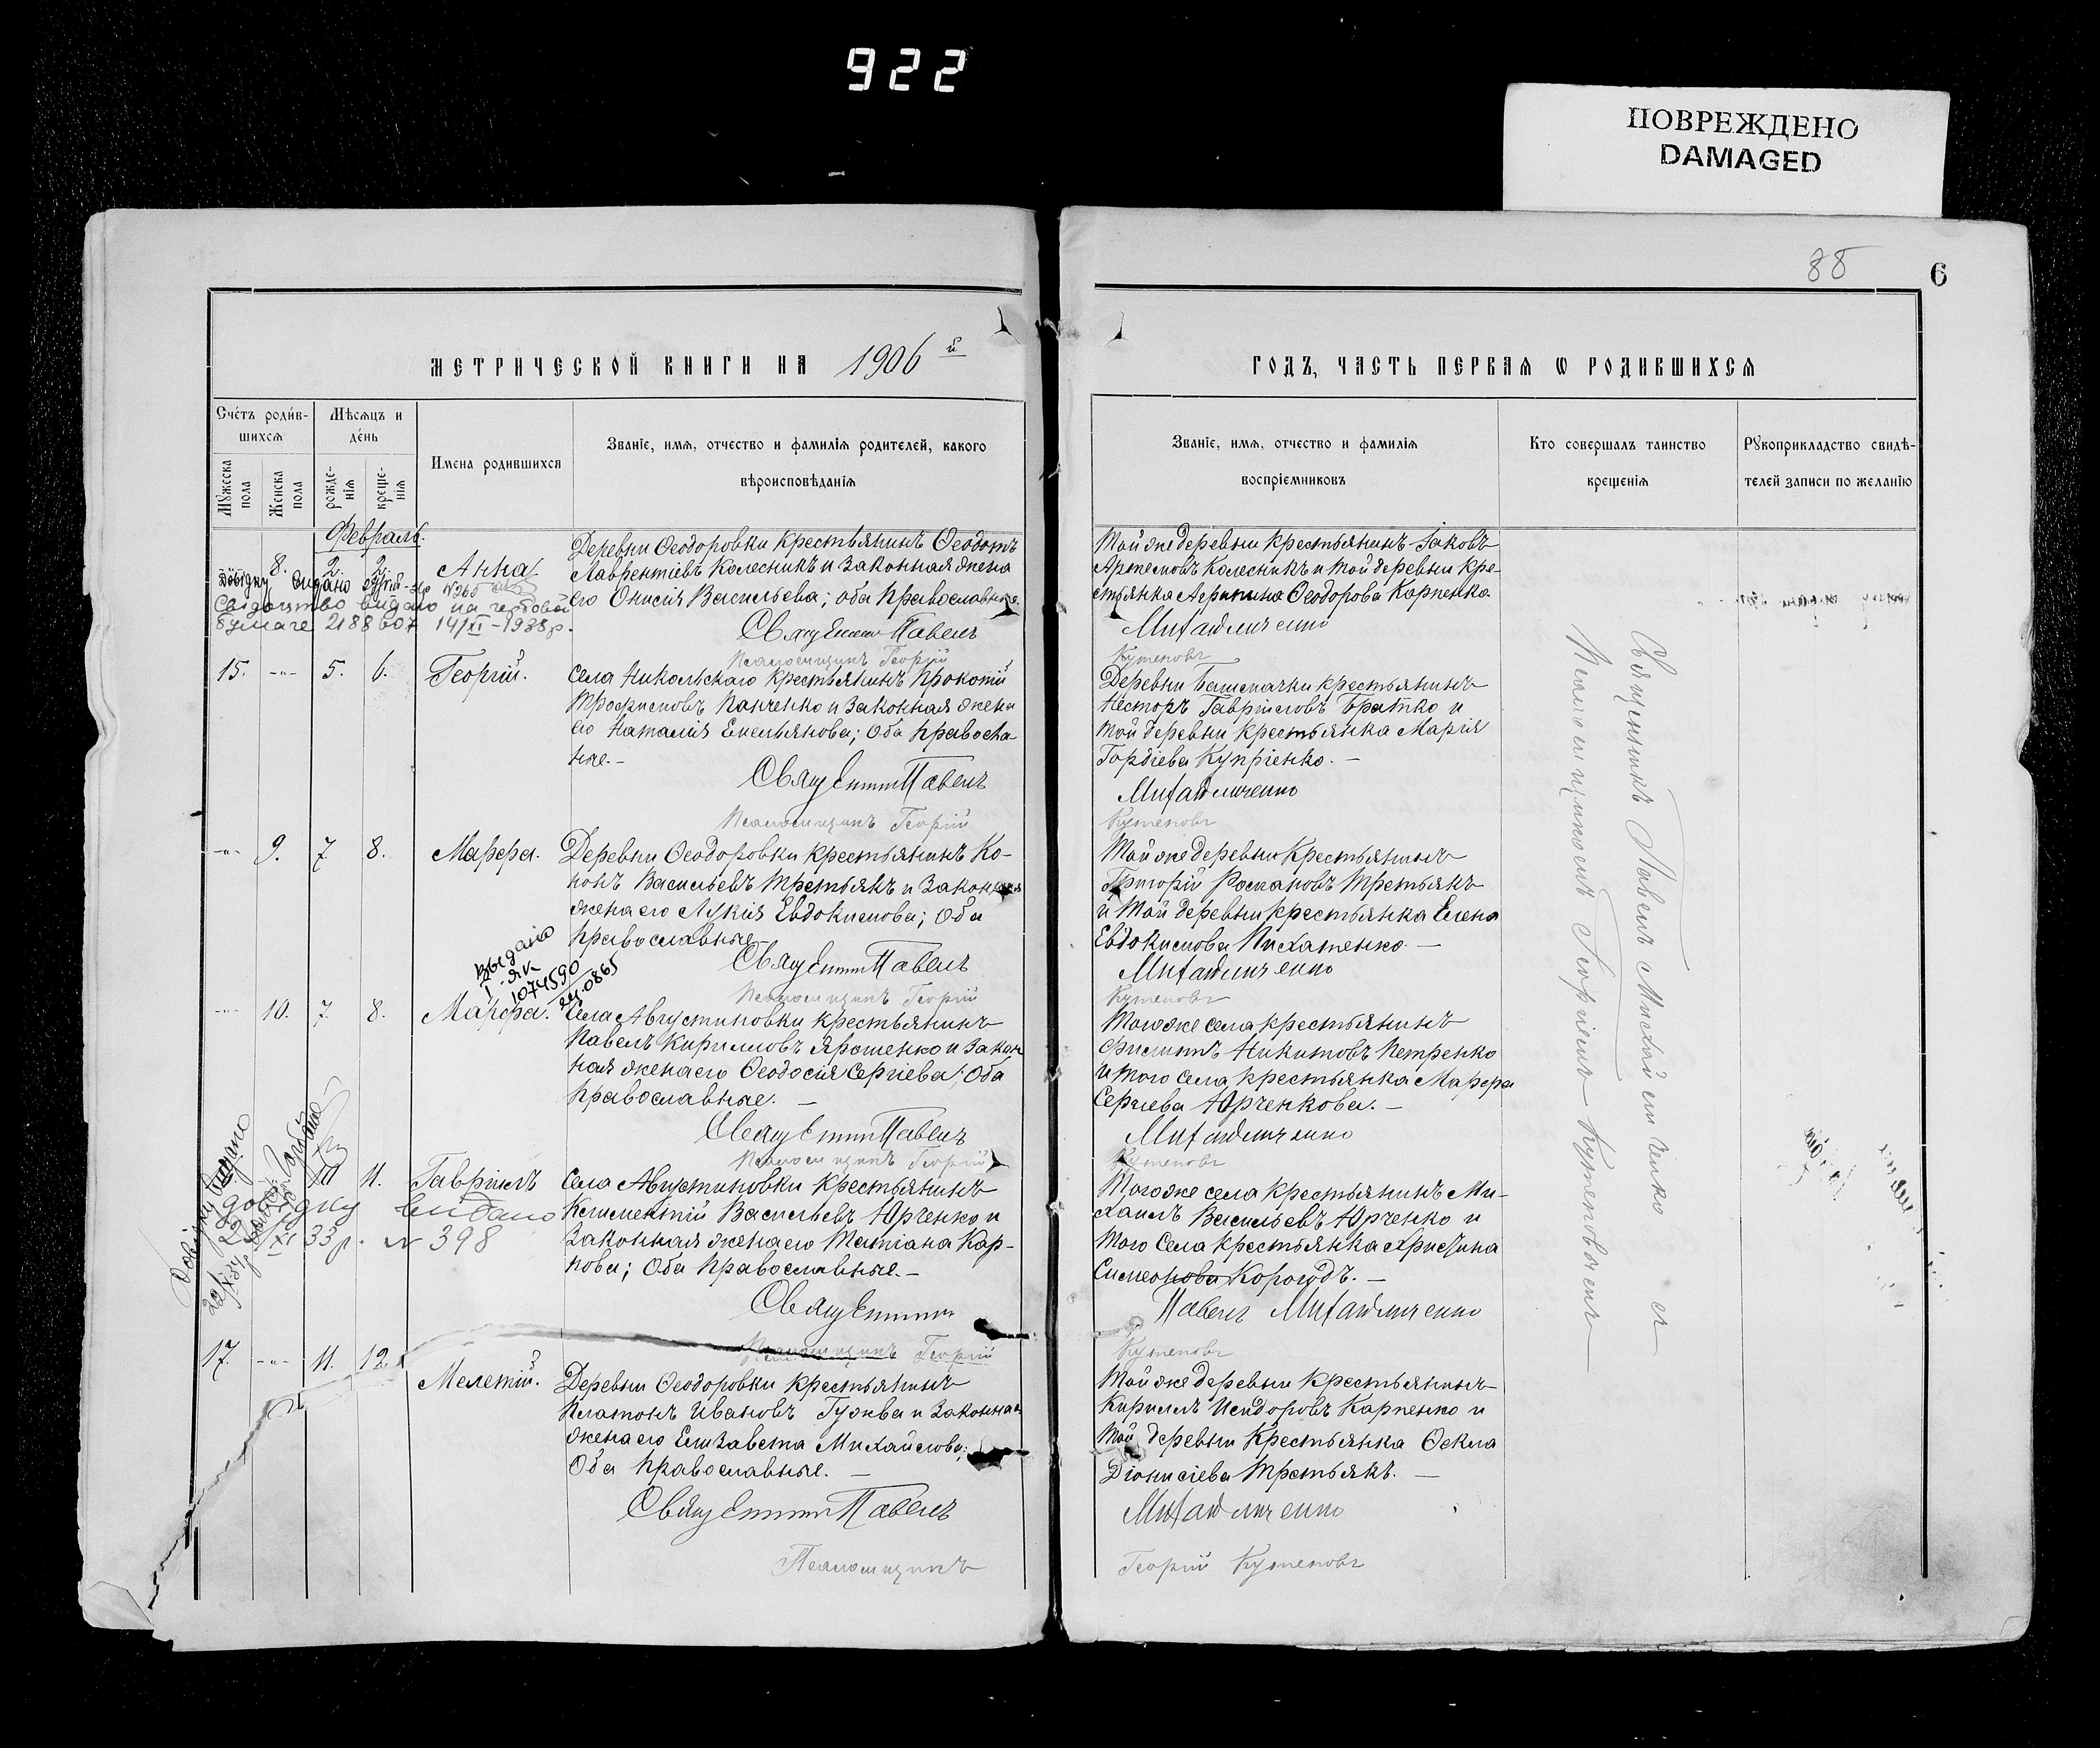 922
ПОВРЕЖДЕНО
DAMAGED
88
6
МЕТРИЧЕСКОЙ КНИГИ НА 1906 й
Счётъ родив-
шихся
Мѣсяцъ и
день
Мужеска
пола
Женска
пола
рожде-
нія
креще-
нія
Имена родившихся
Званіе, имя, отчество и фамилія родителей, какого
вѣроисповѣданія
Февраль.
8. 2. 2. Анна
Деревни Ѳеодоровки крестьянинъ Ѳеодотъ
Лаврентіевъ Колесникъ и законная жена
его Онисія Васильева; оба православные.
Довідку видано
Свідоцтво видано на гербовой
бумаге 2188607 14/XI-1938р.
Священникъ Павелъ
Псаломщикъ Георгій
15. -"- 5. 6. Георгій.
Села Никольскаго крестьянинъ Прокопій
Трофимовъ Панченко и законная жена
его Наталія Емельянова; Оба правосла-
ные.-
Священникъ Павелъ
Псаломщикъ Георгій
-"- 9. 7 8. Марфа.
Деревни Ѳеодоровки крестьянинъ Ко-
нонъ Васильевъ Третьякъ и законная
жена его Лукія Евдокимова; Оба
православные-
Священникъ Павелъ
Псаломщикъ Георгій
Выдано
1074590
24.0865
-"- 10. 7. 8. Марфа.
Села Августиновки крестьянинъ
Павелъ Кирилловъ Ярошенко и закон
ная жена его Ѳеодосія Сергіева; Оба
православные. -
Священникъ Павелъ
Псаломщикъ Георгій
10 11. Гавріилъ
Села Августиновки крестьянинъ
Климентій Васильевъ Юрченко и
законная жена его Татіана Кар-
пова; Оба православные.-
Довідку видано
довідку видано
XI 33р. N 398
Священникъ
Псаломщикъ Георгій
17. -"- 11. 12. Мелетій.
Деревни Ѳеодоровки крестьянинъ
Платонъ Ивановъ Гужва и законная
жена его Елизавета Михайлова;
Оба православные. -
Священникъ Павелъ
Псаломщикъ
ГОДЪ, ЧАСТЬ ПЕРВАЯ Ѡ РОДИВШИХСЯ
Званіе, имя, отчество и фамилія
воспріемниковъ
Кто совершалъ таинство
крещенія
Рукоприкладство свидѣ-
телей записи по желанію
Той же деревни крестьянинъ Іаковъ
Артемовъ Колесникъ и той деревни кре-
стьянка Агрипина Ѳеодорова Карпенко
Михайличенко
Кутеповъ
Деревни Башмачки крестьянинъ
Несторъ Гавріиловъ Братко и
той деревни крестьянка Марія
Гордіева Купріенко. -
Михайличенко
Кутеповъ
Той же деревни крестьянинъ
Григорій Романовъ Третьякъ
и той деревни крестьянка Елена
Евдокимова Пихатенко. -
Михайличенко
Кутеповъ
Того же села крестьянинъ
Филиппъ Никитовъ Петренко
и того села крестьянка Марфа
Сергіева Юрченкова. -
Михайличенко
Кутеповъ
Того же села крестьянинъ Ми-
хаилъ Васильевъ Юрченко и
того села крестьянка Христина
Симеонова Корогодъ. -
Павелъ Михайличенко
Кутеповъ
Той же деревни крестьянинъ
Кириллъ Исидоровъ Карпенко и
той деревни крестьянка Ѳекла
Діонисіева Третьякъ. -
Михайличенко
Георгій Кутеповъ
Священникъ Павелъ Михайличенко съ
Псаломщикомъ Георгіемъ Кутеповымъ